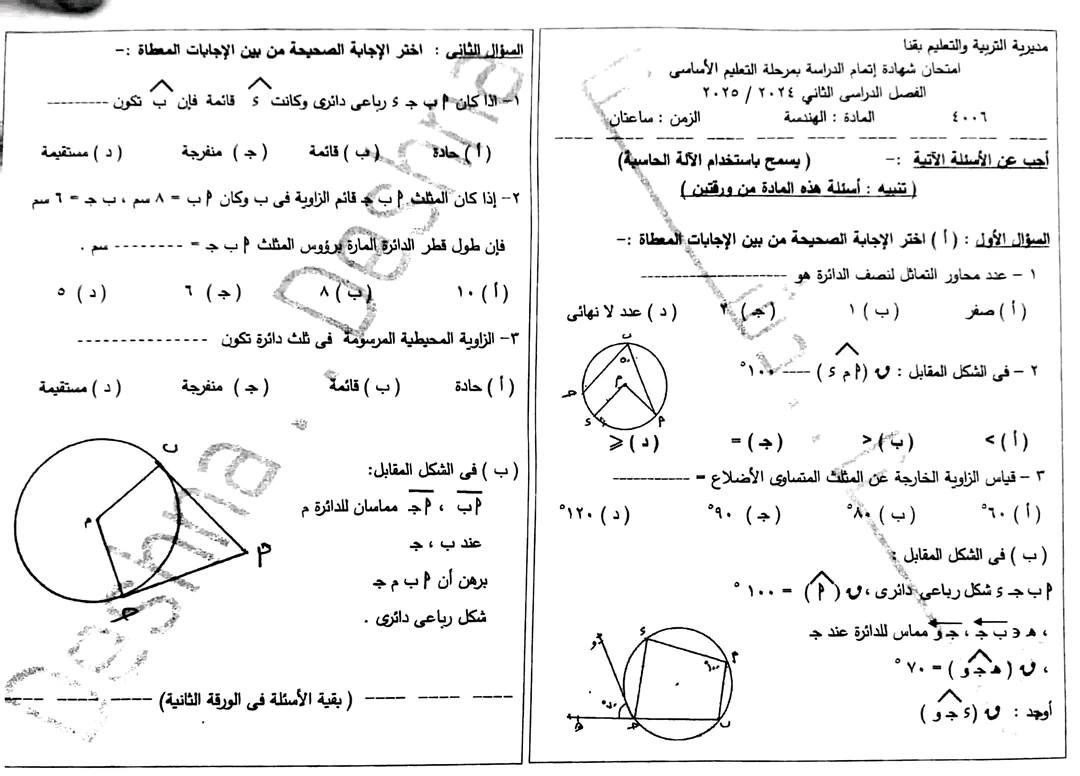 مديرية التربية والتعليم بقنا
امتحان شهادة إتمام الدراسة بمرحلة التعليم الأساسى
الفصل الدراسى الثاني ٢٠٢٤ / ٢٠٢٥
٤٠٠٦ المادة : الهندسة الزمن : ساعتان
أجب عن الأسئلة الآتية :- ( يسمح باستخدام الآلة الحاسبة)
( تنبيه : أسئلة هذه المادة من ورقتين )
السؤال الأول : ( أ ) اختر الإجابة الصحيحة من بين الإجابات المعطاة :-
١ – عدد محاور التماثل لنصف الدائرة هو ----------------
( أ ) صفر ( ب ) ١ ( جـ ) ٢ ( د ) عدد لا نهائى
٢ – فى الشكل المقابل : ق (م̂ أ م ء) ---- ١٠٠°
( أ ) > ( ب ) < ( جـ ) = ( د ) ⩽
٣ – قياس الزاوية الخارجة عن المثلث المتساوى الأضلاع = -----------
( أ ) ٦٠° ( ب ) ٨٠° ( جـ ) ٩٠° ( د ) ١٢٠°
( ب ) فى الشكل المقابل :
أ ب جـ ء شكل رباعي دائرى ، ق (أ̂) = ١٠٠°
، هـ ∈ ب جـ ، جـ و مماس للدائرة عند جـ
، ق (هـ جـ̂ و) = ٧٠°
أوجد : ق (ء جـ̂ و)
السؤال الثانى : اختر الإجابة الصحيحة من بين الإجابات المعطاة :-
١- اذا كان أ ب جـ ء رباعى دائرى وكانت ء̂ قائمة فإن ب̂ تكون ---------
( أ ) حادة ( ب ) قائمة ( جـ ) منفرجة ( د ) مستقيمة
٢- إذا كان المثلث أ ب جـ قائم الزاوية فى ب وكان أ ب = ٨ سم ، ب جـ = ٦ سم
فإن طول قطر الدائرة المارة برؤوس المثلث أ ب جـ = -------- سم .
( أ ) ١٠ ( ب ) ٨ ( جـ ) ٦ ( د ) ٥
٣- الزاوية المحيطية المرسومة فى ثلث دائرة تكون ---------------
( أ ) حادة ( ب ) قائمة ( جـ ) منفرجة ( د ) مستقيمة
( ب ) فى الشكل المقابل:
أ ب ، أ جـ مماسان للدائرة م
عند ب ، جـ
برهن أن أ ب م جـ
شكل رباعى دائرى .
( بقية الأسئلة فى الورقة الثانية)
Deshna
Deshna